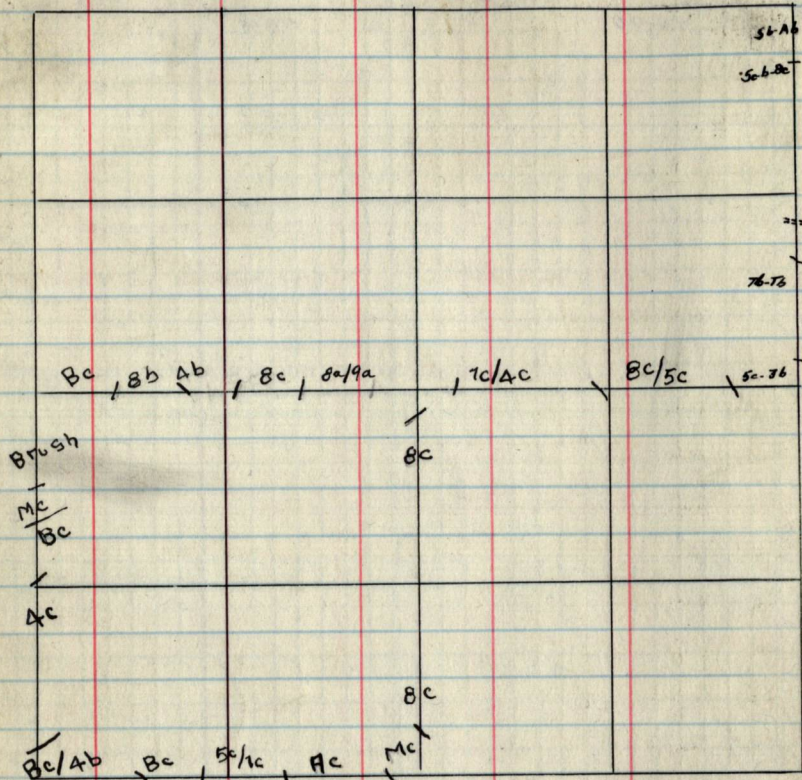 5b-Ab
5c-b-8c
7b-7b
Bc / 8b \ 4b / 8c / 8a/9a / 7c/4c \ 8c/5c \ 5c-3b
8c
Brush
Mc
Bc
4c
8c
Bc/4b \ Bc / 5c/7c / Ac \ Mc